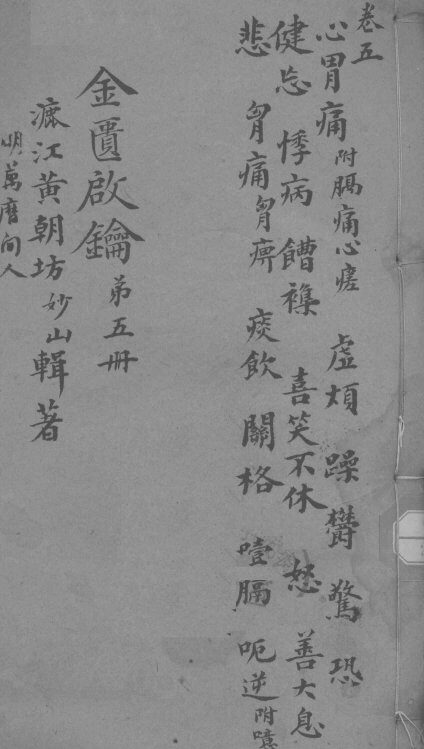 卷五
心胃痛 附膈痛心瘥 虛煩 躁 鬱 驚 恐
健忘 悸病 饋襍 喜笑不休 怒 善大息
悲 胷痛 胷痹 痰飲 關格 噎膈 呃逆 附噫
金匱啟鑰 第五冊
漉江黃朝坊妙山輯著
明萬曆间人